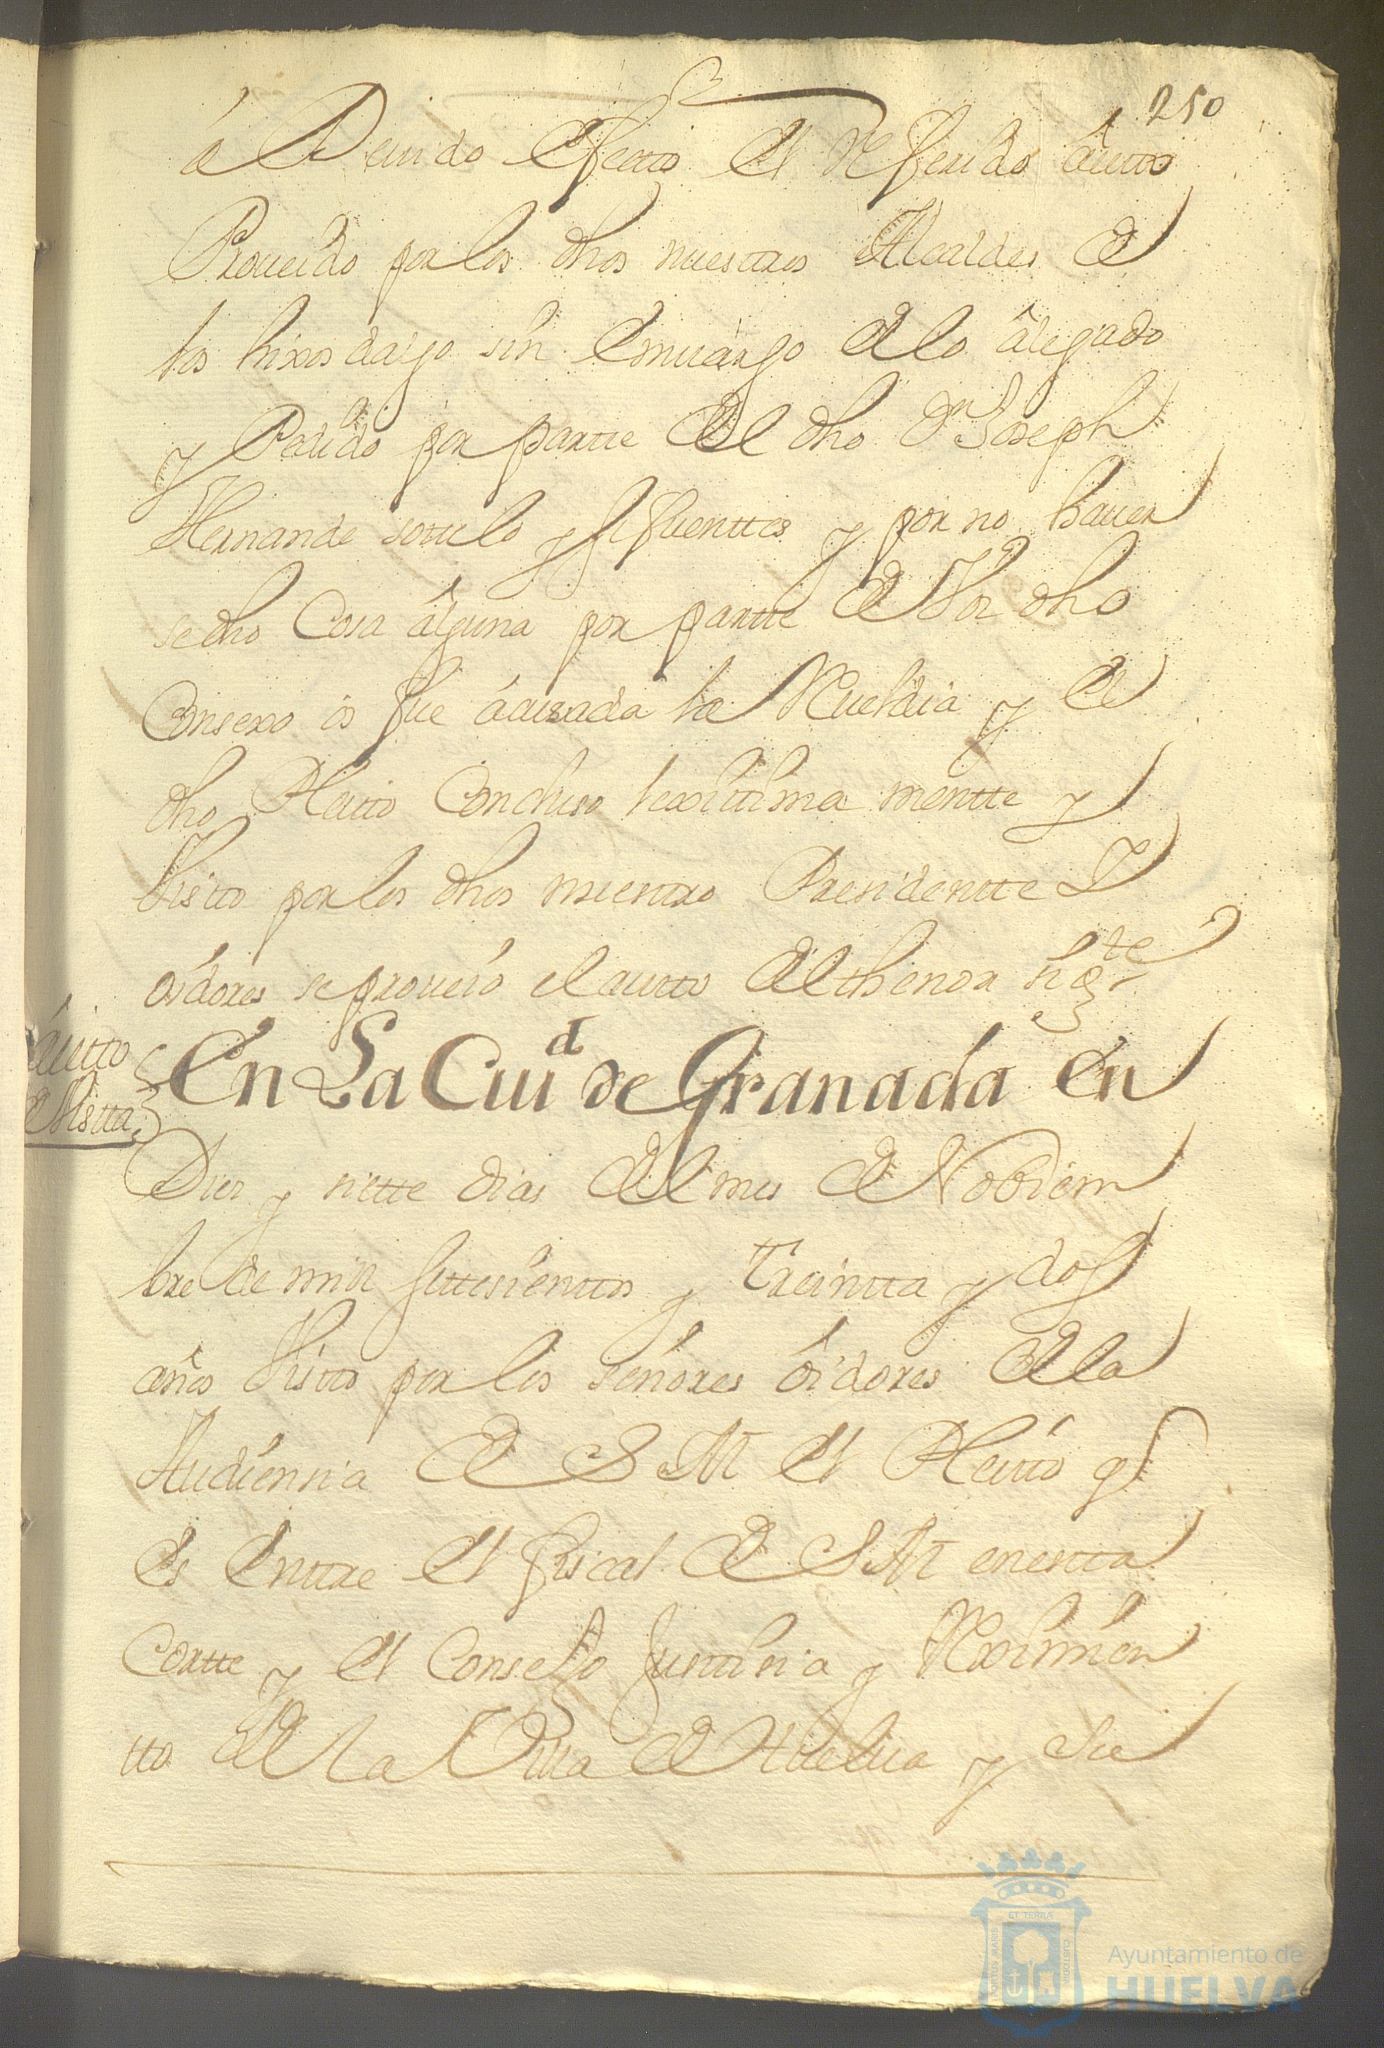 250
á Deuido efecto el Referido áutto
Proueido por los dhos nuestros Alcaldes de
los hixos dalgo sin Emuárgo de lo álegado
y Pedido por partte del dho Dn Joseph
Hernande sottelo y sifuenttes y por no hauer
se dho Cosa álguna por partte de Vos dho
Consexo os fue ácusada la Rueldia y el
dho Pleitto Concluso lexittima mentte y
Visto por los dhos nuestro Presidentte Y
oidores se proueió el autto del thenor sigte
áutto
de Vistta
En La Ciud de Granada en
Diez y siette dias del mes de Nobiem
bre de mill settesienttos y Treintta y dos
años Visto por los señores óidores de la
Audiensia de S M el Pleitto q
es Enttre el fiscal de S M en estta
Cortte y el Consejo Justisia y Reximien
tto de la Villa de Huelua y Su
PORTUS MARIS ET TERRAE CUSTODIA
Ayuntamiento de
HUELVA